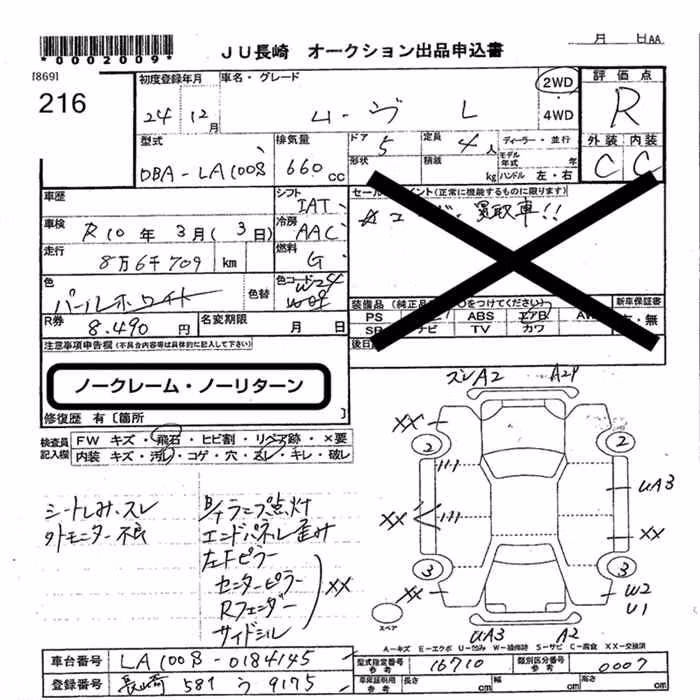 *0002009*
JU長崎 オークション出品申込書
月 日AA
[869]
216
初度登録年月 車名・グレード 2WD 評価点
24年 12月 ムーヴ L ・4WD R
型式 排気量 ドア 定員 ディーラー・並行 外装 内装
DBA-LA100S 660cc 5 4人 モデル年式 年 C C
形状 積載 kg ハンドル 左・右
車歴 シフト IAT
車検 R10年 3月(3日) 冷房 AAC
走行 8万6千709 km 燃料 G
色 パールホワイト 色替 色コード W24
R券 8.490円 名変期限 月 日
買取車!!
装備品 新車保証書
PS ABS エアB
TV カワ 有・無
注意事項申告欄(不具合内容等は具体的に記入して下さい)
ノークレーム・ノーリターン
修復歴 有〔箇所 〕
検査員記入欄 FW キズ・飛石・ヒビ割・リペア跡・×要
内装 キズ・汚レ・コゲ・穴・スレ・キレ・破レ
シートしみ、スレ
外モニター不良
B/イランプ点灯
エンドパネル歪み
左Fピラー
センターピラー
Rフェンダー
サイドシル
XX
ズレA2 A29
XX
2 2
UA3
XX XX
3 3
XX W2
U1
スペア
UA3 A2
A-キズ E-エクボ U-凹み W-補修跡 S-サビ C-腐食 XX-交換済
車台番号 LA100S-0184145
型式指定番号 参考 16710 類別区分番号 参考 0007
登録番号 長崎 581 う 9175
車庫証明用 参考 長さ cm 幅 cm 高さ cm